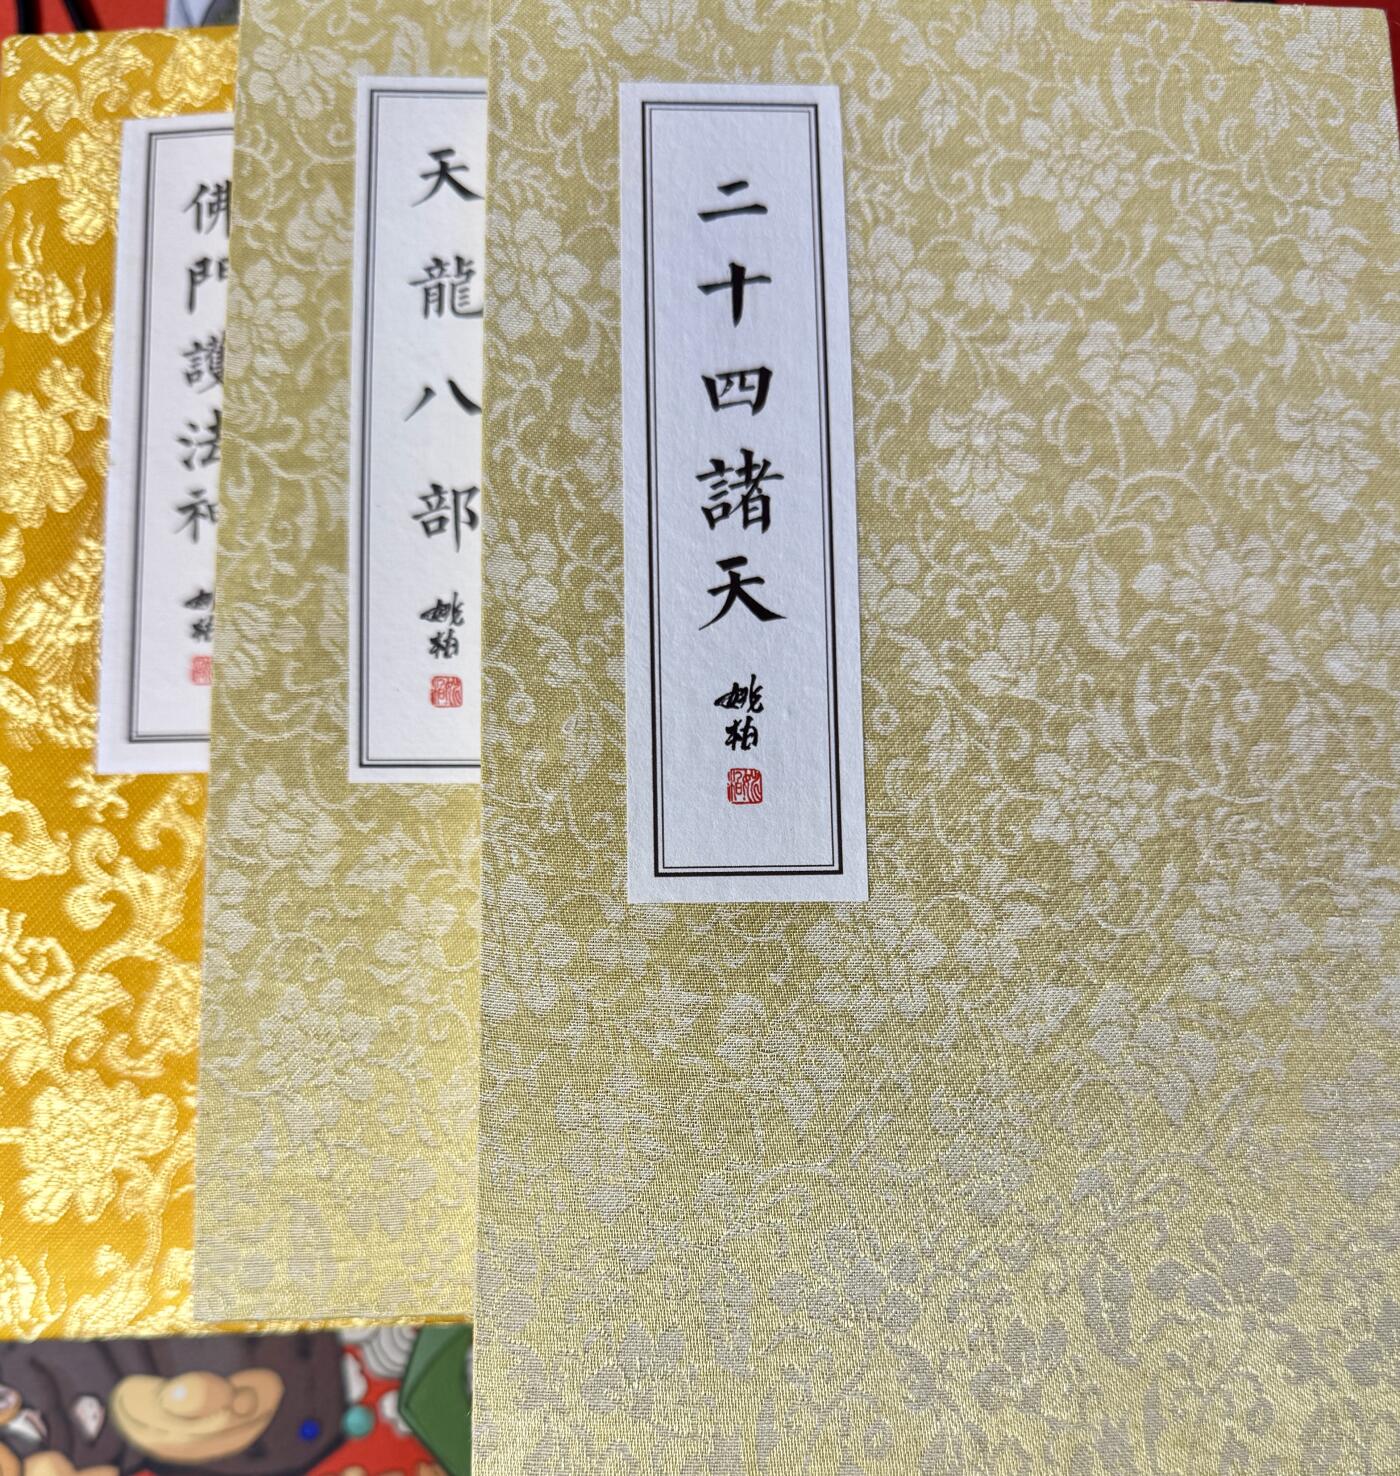 二十四諸天
姚柏
天龍八部
姚柏
佛門護法神
姚柏